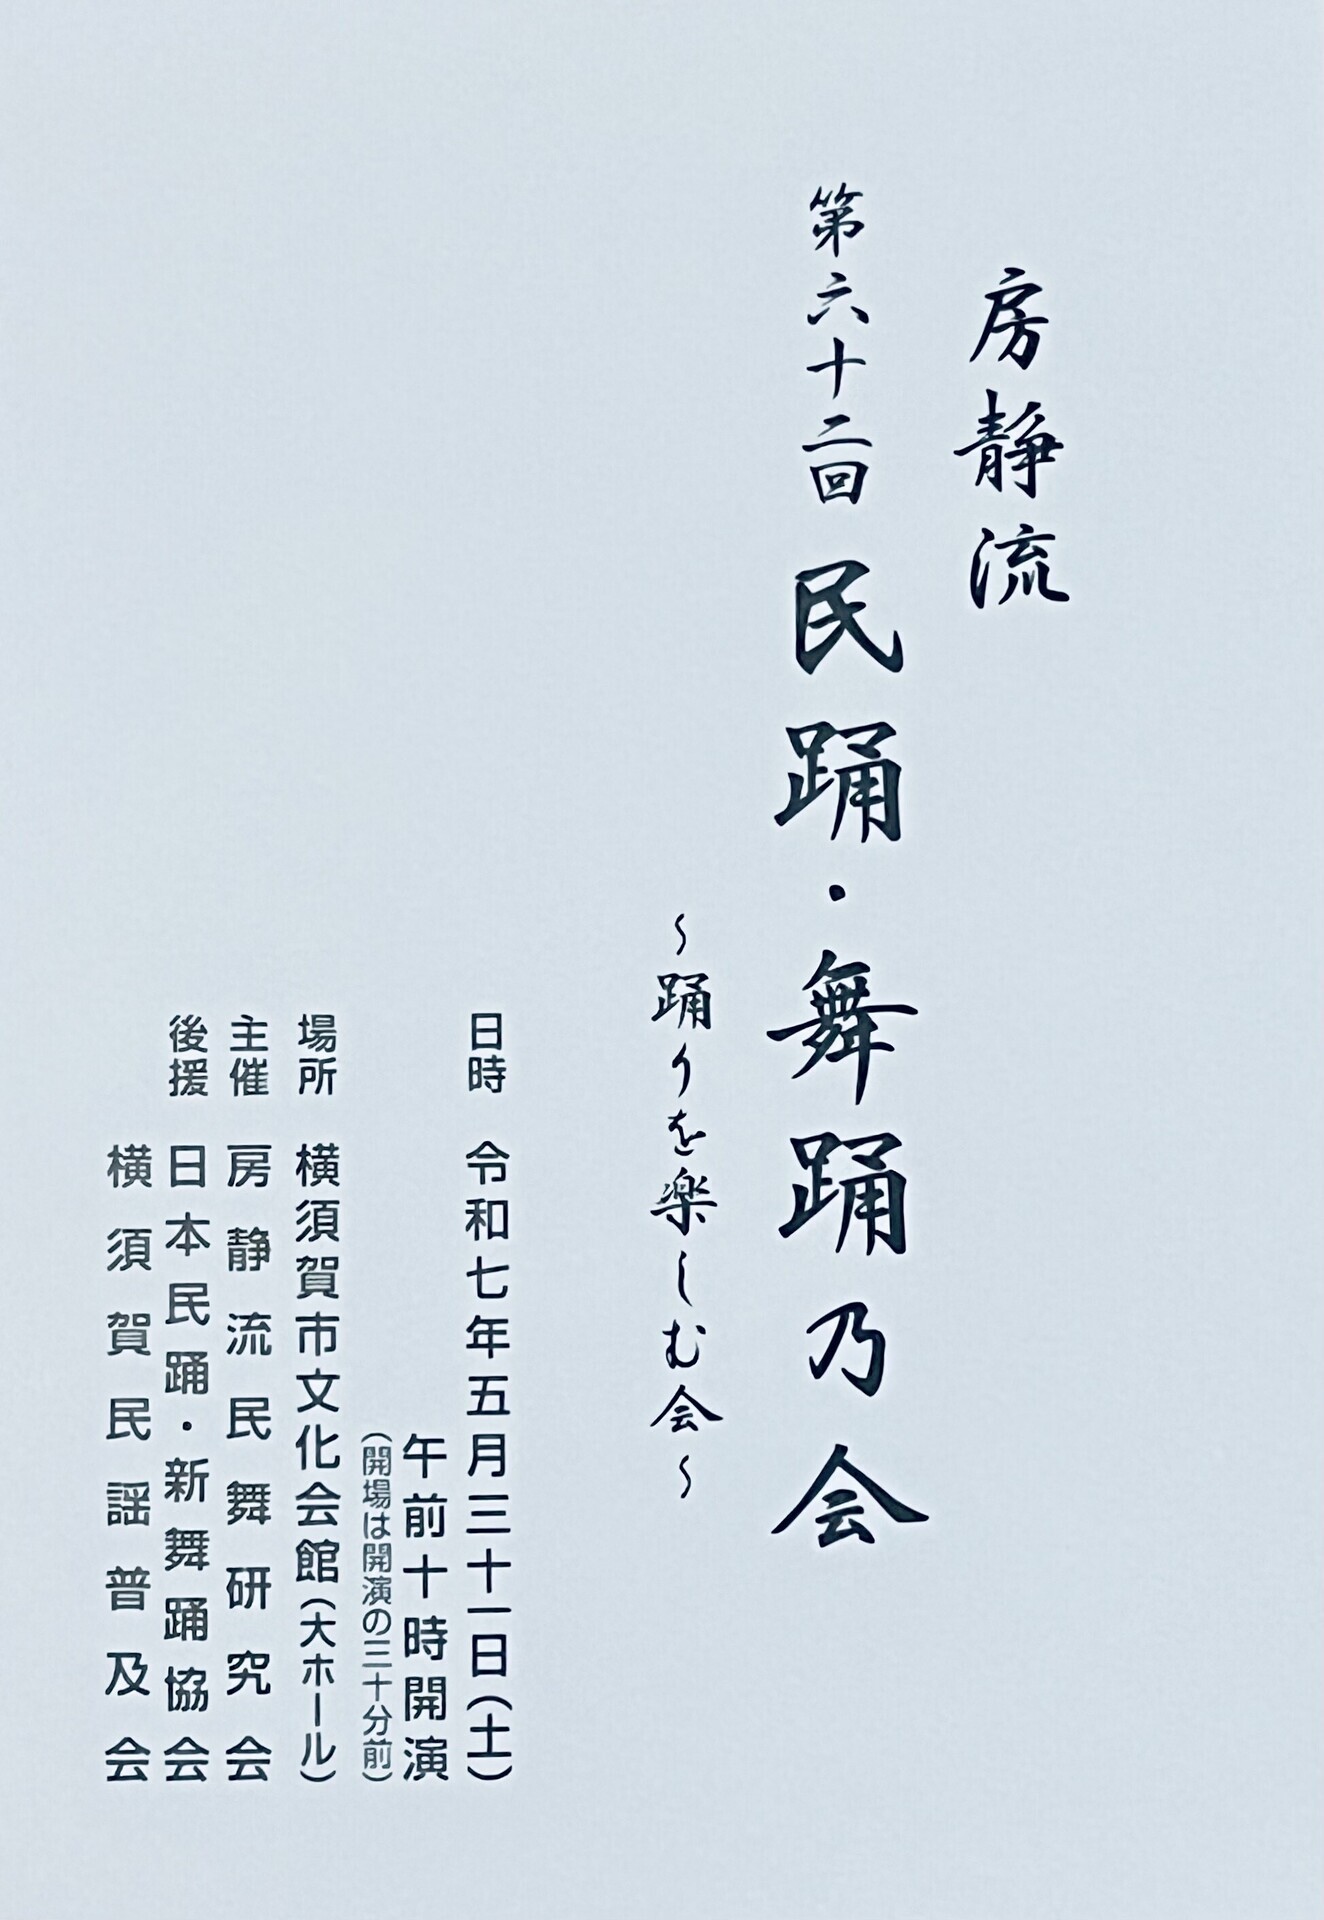 房静流
第六十二回 民踊・舞踊乃会
～踊りを楽しむ会～
日時 令和七年五月三十一日（土）
午前十時開演
（開場は開演の三十分前）
場所 横須賀市文化会館（大ホール）
主催 房静流民舞研究会
後援 日本民踊・新舞踊協会
横須賀民謡普及会